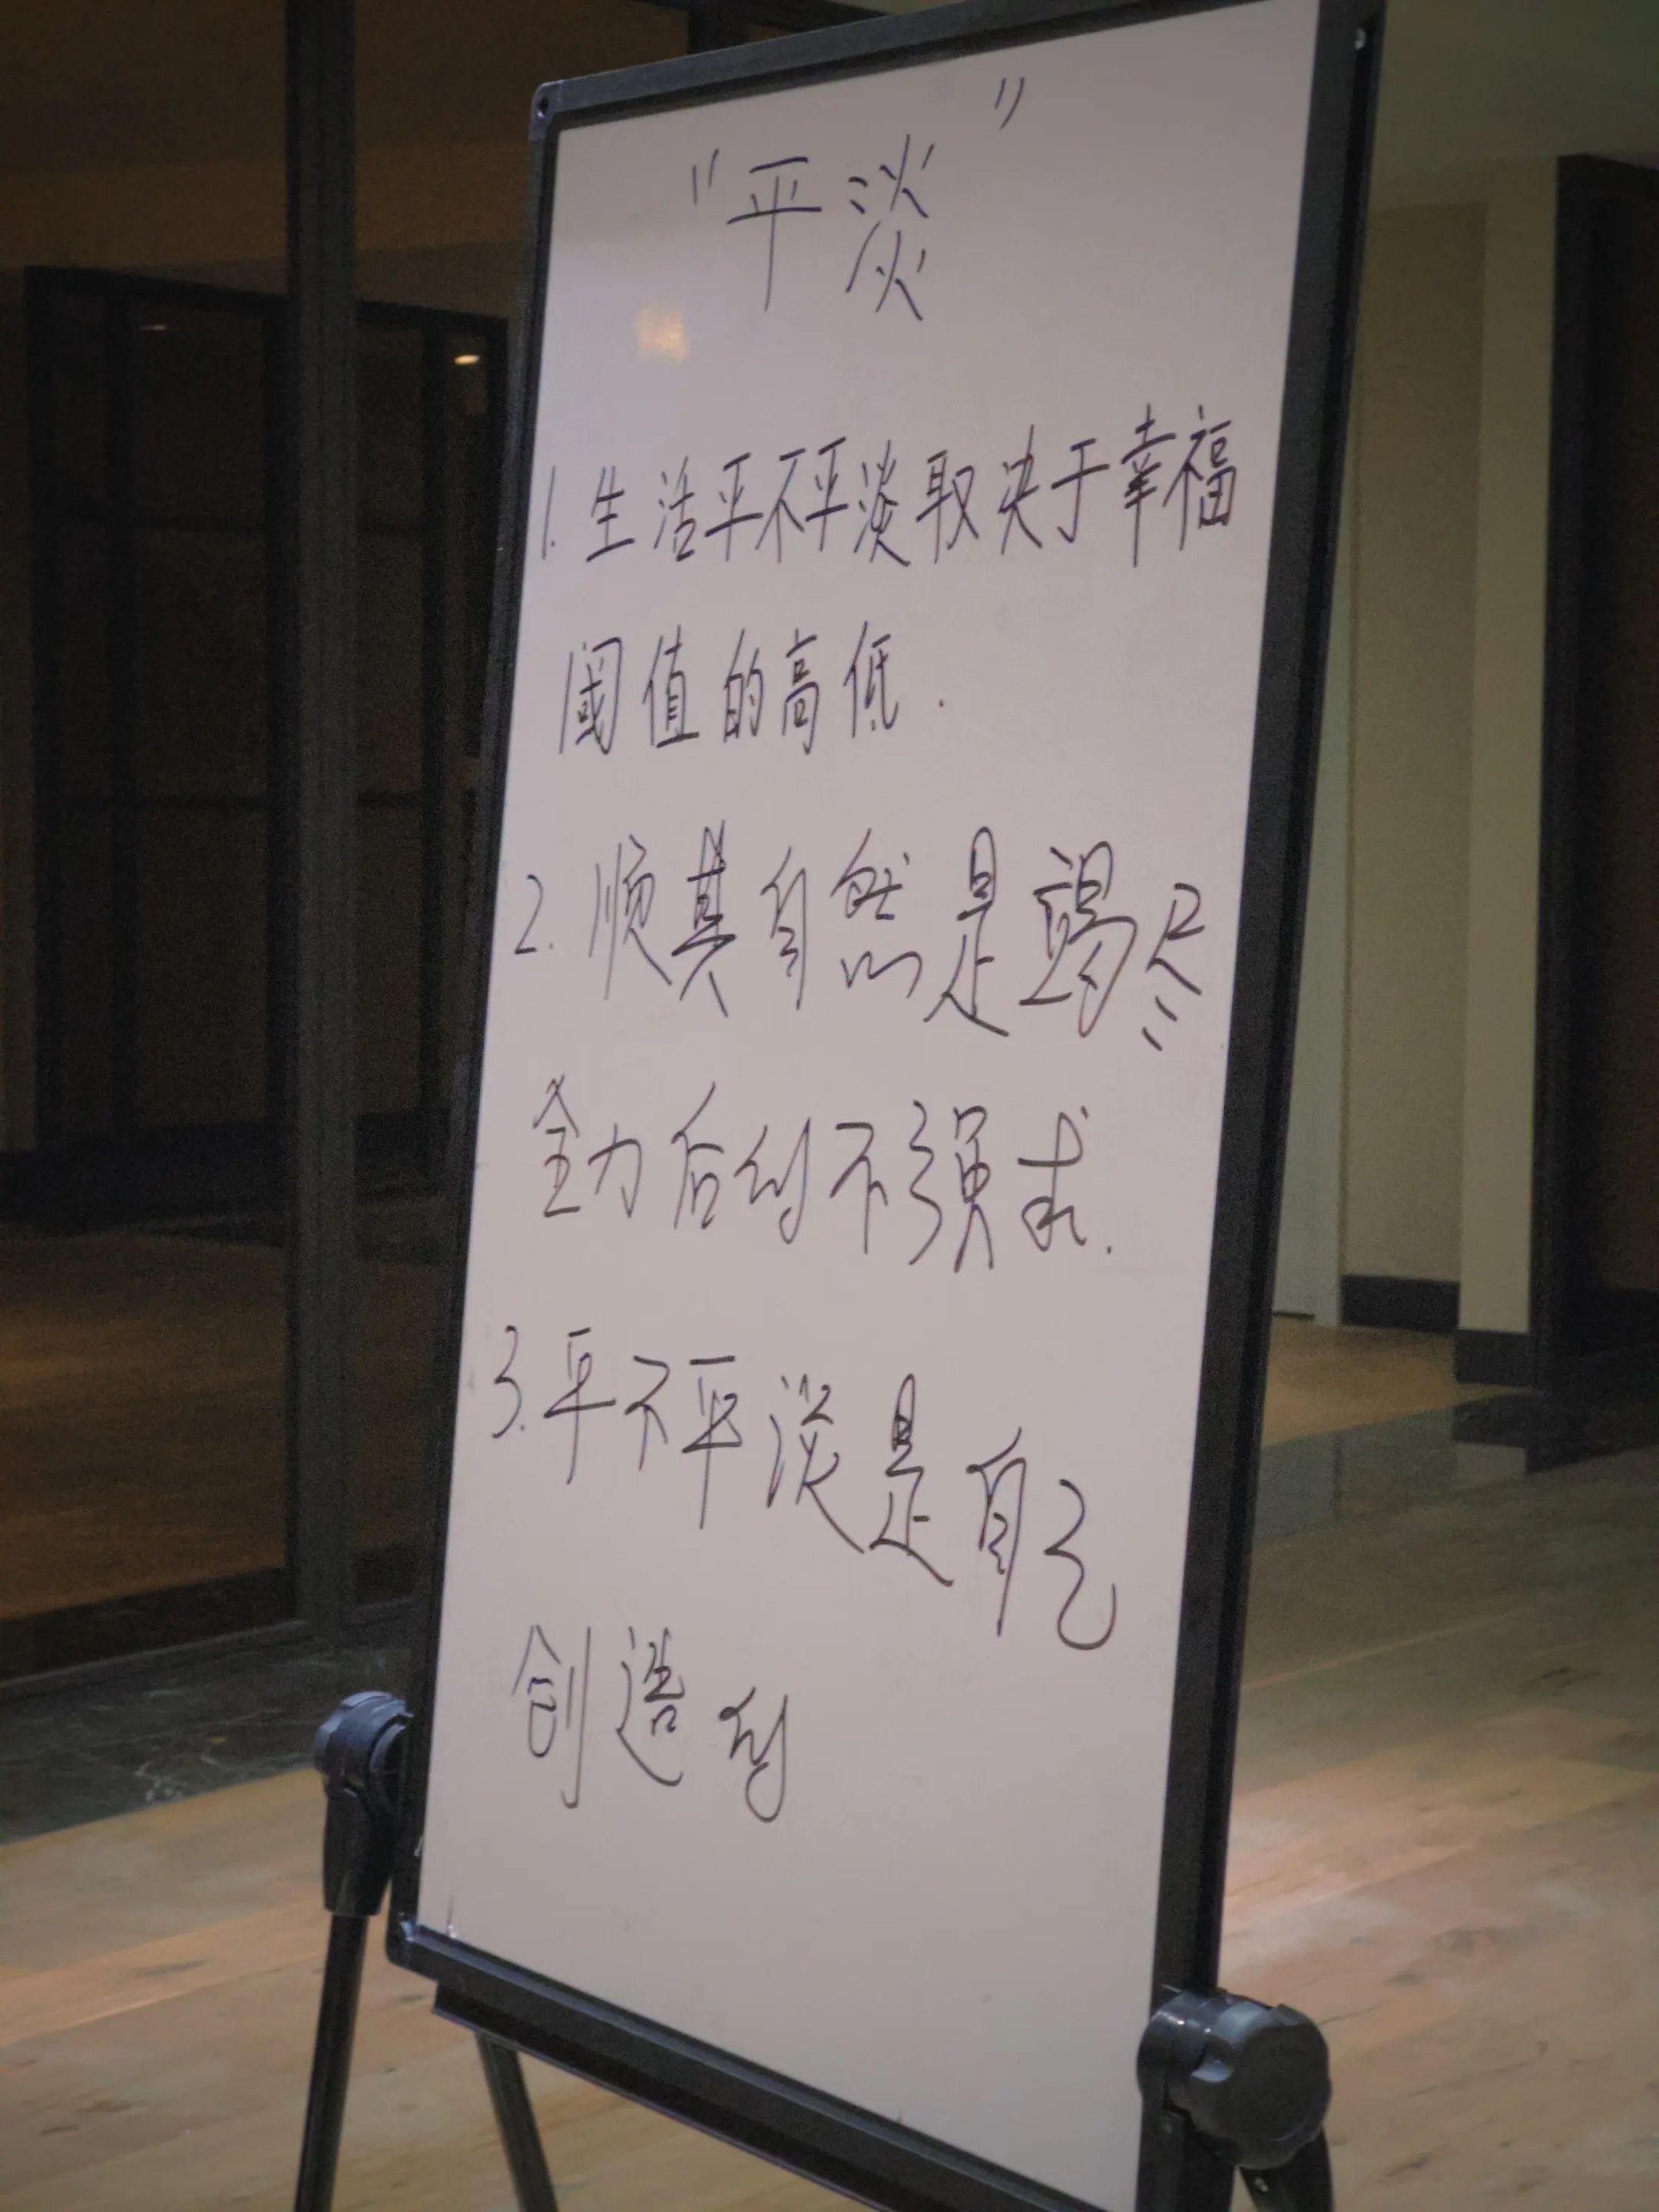 “平淡”
1.生活平不平淡取决于幸福
阈值的高低.
2.顺其自然是竭尽
全力后的不强求.
3.平不平淡是自己
创造的